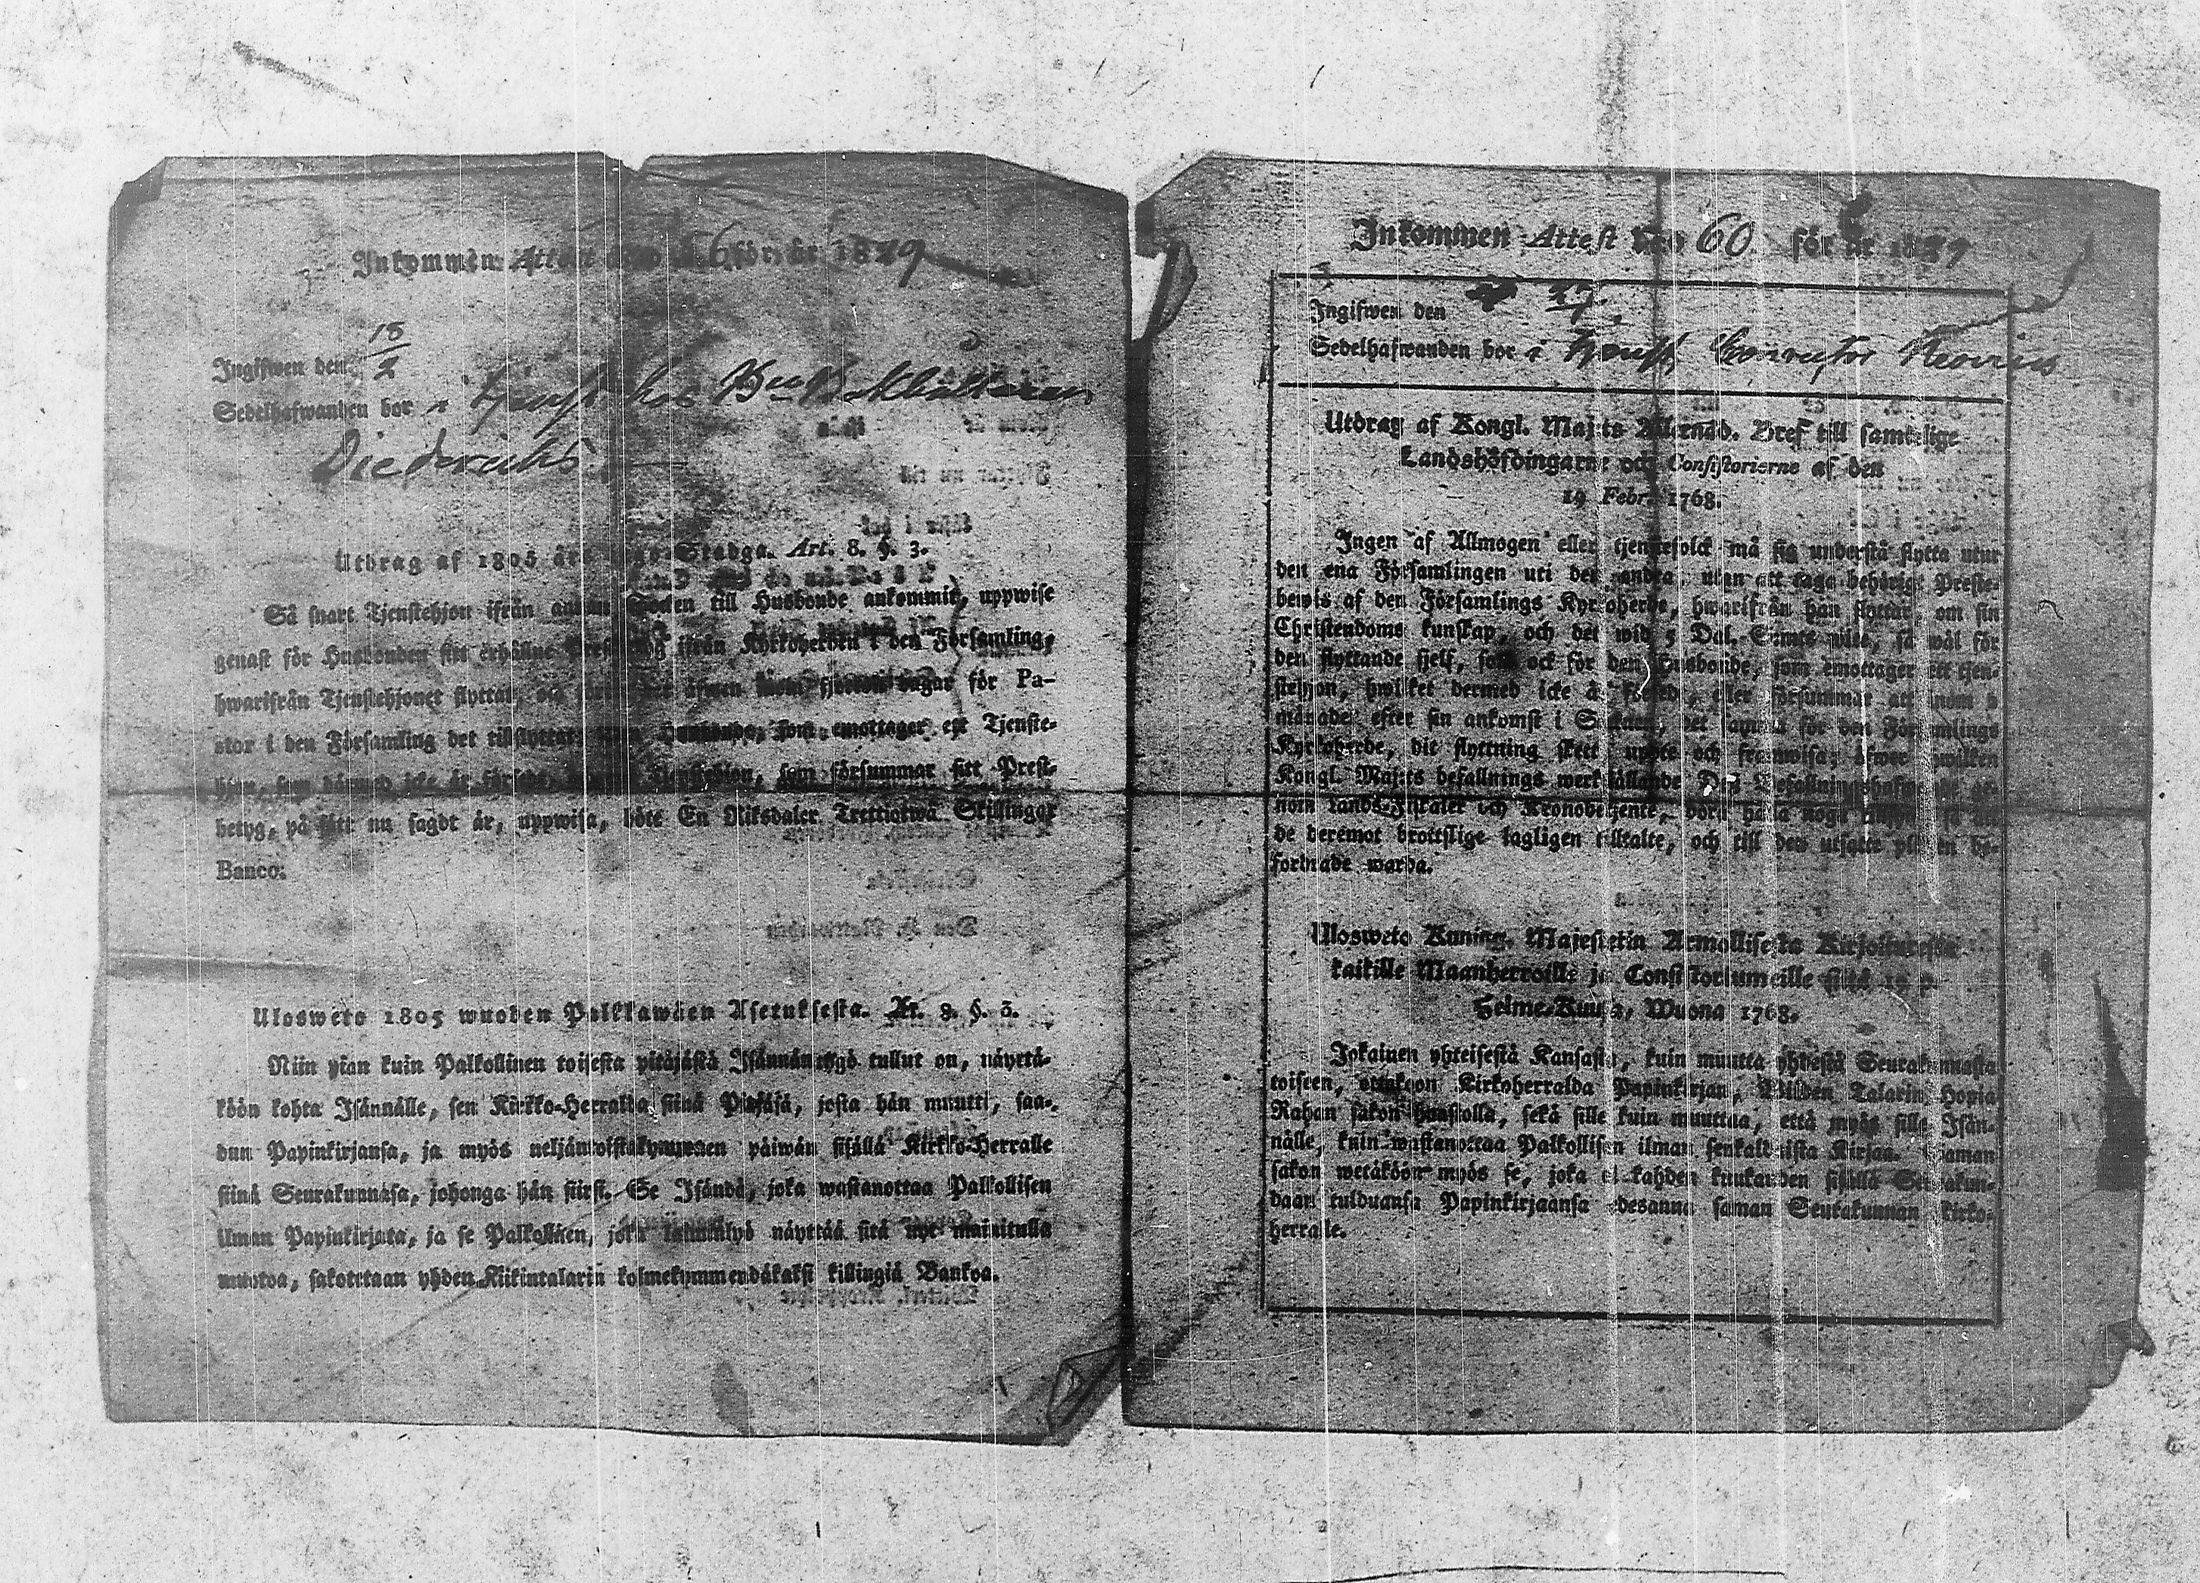 Inkommen Attest N:o 56 för år 1829
Ingifwen den 18/2
Sedelhafwanden bor i tjenst hos
Diederichs
Utdrag af 1805 års Stadga. Art. 8. §. 3.
Så snart Tjenstehjon ifrån till Husbonde ankommit, uppwise
genast för Husbonden sitt erhållne ifrån Kyrkoherden i den Församling,
hwarifrån Tjenstehjonet flyttat, för Pa-
stor i den Församling det tillflyttat. som emottager ett Tjenste-
hjon, som dermed icke är försedt, Tjenstehjon, som försummar sitt Prest-
betyg, på sätt nu sagdt är, uppwisa, böte En Riksdaler Trettiotwå Skillingar
Banco.
Ulosweto 1805 wuoden Palkkawäen Asetuksesta. Ar. 8. §. 3.
Niin pian kuin Palkollinen toisesta pitäjästä Isännäntygö tullut on, näyttä-
köön kohta Isännälle, sen Kirkko-Herralda siinä Pitäjäsä, josta hän muutti, saa-
dun Papinkirjansa, ja myös neljäntoistakymmenen päiwän sisällä Kirkko-Herralle
siinä Seurakunnasa, johonga hän siirst. Se Isändä, joka wastanottaa Palkollisen
ilman Papinkirjata, ja se Palkollinen, joka näyttää sitä nyt mainitulla
muotoa, sakotetaan yhden Riikintalarin kolmekymmendäkaksi killingiä Bankoa.
Inkommen Attest N:o 60 för år 18
Ingifwen den
Sedelhafwanden bor i tjenst Conrector
Utdrag af Kongl. Maj:ts Allernåd. Bref till samtelige
Landshöfdingarne och Consistorierne af den
19 Febr. 1768.
Ingen af Allmogen eller tjenstefolck må sig understå flytta utur
den ena Församlingen uti den andra, utan att taga behörigt Preste-
bewis af den Församlings Kyrkoherde, hwarifrån han flyttar, om sin
Christendoms kunskap, och det wid 5 Dal. Smts wite, så wäl för
den flyttande sjelf, som ock för den Husbonde, som emottager ett tjen-
stehjon, hwilket dermed icke är försedt, eller försummar att inom 2
månader efter sin ankomst i Socknen, det samma för den Församlings
Kyrkoherde, dit flyttning skett, uppte och framwisa; öfwer hwilken
Kongl. Maj:ts befallnings werkställande Des Befallningshafwande ge-
nom Lands-Fiskaler och Kronobetjente, böra hafwa noga
de deremot brottslige lagligen tilltalte, och till dess utsatte plikten be-
fordrade warda.
Ulosweto Kuning. Majestetin Armollisesta Kirjoituxesta
kaikille Maanherroille ja Consistoriumeille siitä 19 p.
Helme-Kuusa, Wuona 1768.
Jokainen yhteisestä Kansasta, kuin muutta yhdestä Seurakunnasta
toiseen, ottakoon Kirkoherralda Papinkirjan, Wiiden Talarin Hopia
Rahan sakon haastolla, sekä sille kuin muuttaa, että myös sille Isän-
nälle, kuin wastanottaa Palkollisen ilman senkaltaista Kirjaa. Saman
sakon wetäköön myös se, joka ei kahden kuukauden sisällä Seurakun-
daan tulduansa Papinkirjaansa edesanna saman Seurakunnan Kirko-
herralle.